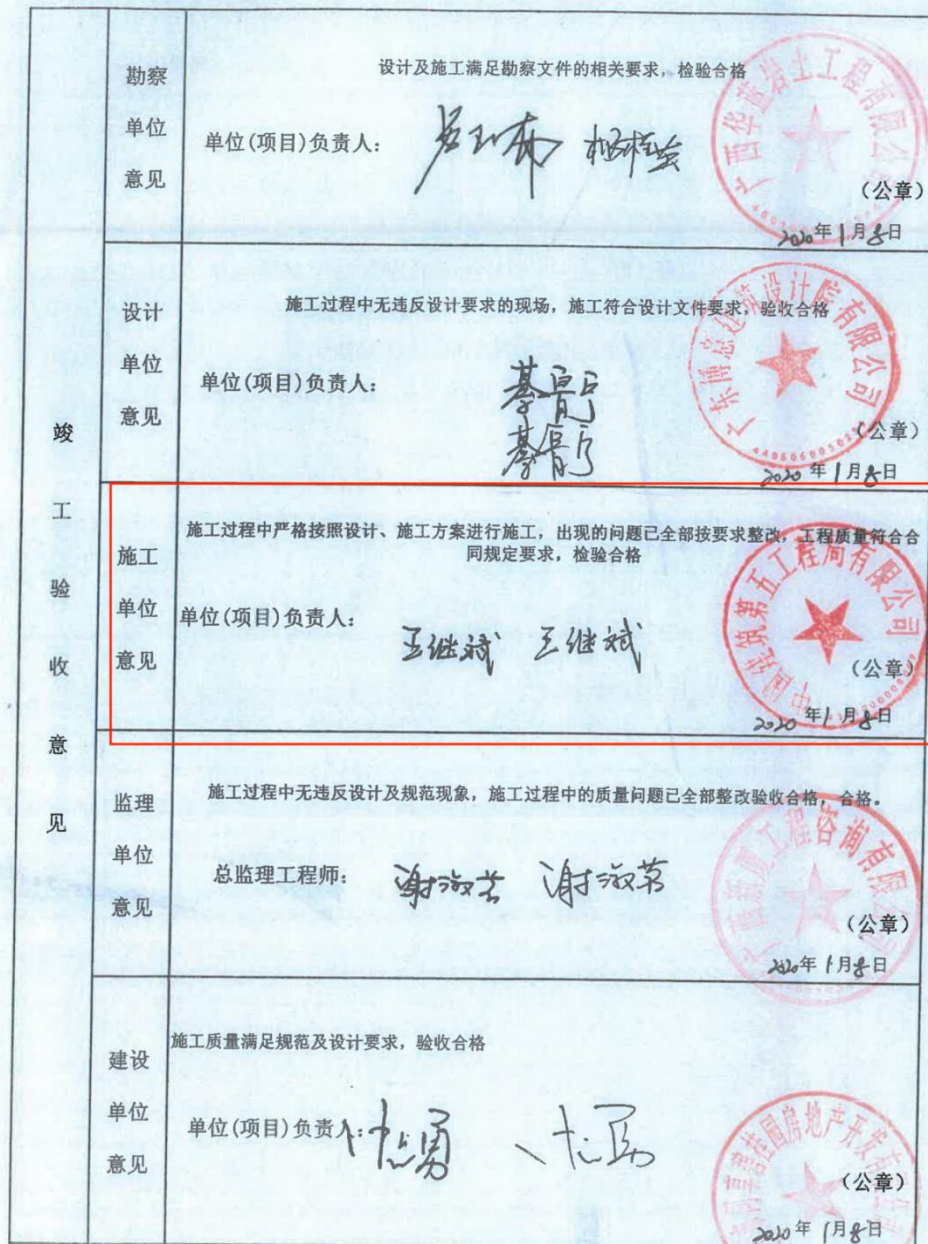 竣工验收意见
勘察单位意见
设计及施工满足勘察文件的相关要求，检验合格
单位(项目)负责人：
广西华蓝岩土工程有限公司
(公章)
2020年1月8日
设计单位意见
施工过程中无违反设计要求的现场，施工符合设计文件要求，验收合格
单位(项目)负责人：
广东博意建筑设计院有限公司
(公章)
2020年1月8日
施工单位意见
施工过程中严格按照设计、施工方案进行施工，出现的问题已全部按要求整改，工程质量符合合
同规定要求，检验合格
单位(项目)负责人：
王继斌 王继斌
中国建筑第五工程局有限公司
(公章)
2020年1月8日
监理单位意见
施工过程中无违反设计及规范现象，施工过程中的质量问题已全部整改验收合格，合格。
总监理工程师：
谢淑芳 谢淑芳
工程咨询有限公司
(公章)
2020年1月8日
建设单位意见
施工质量满足规范及设计要求，验收合格
单位(项目)负责人：
碧桂园房地产开发有限公司
(公章)
2020年1月8日